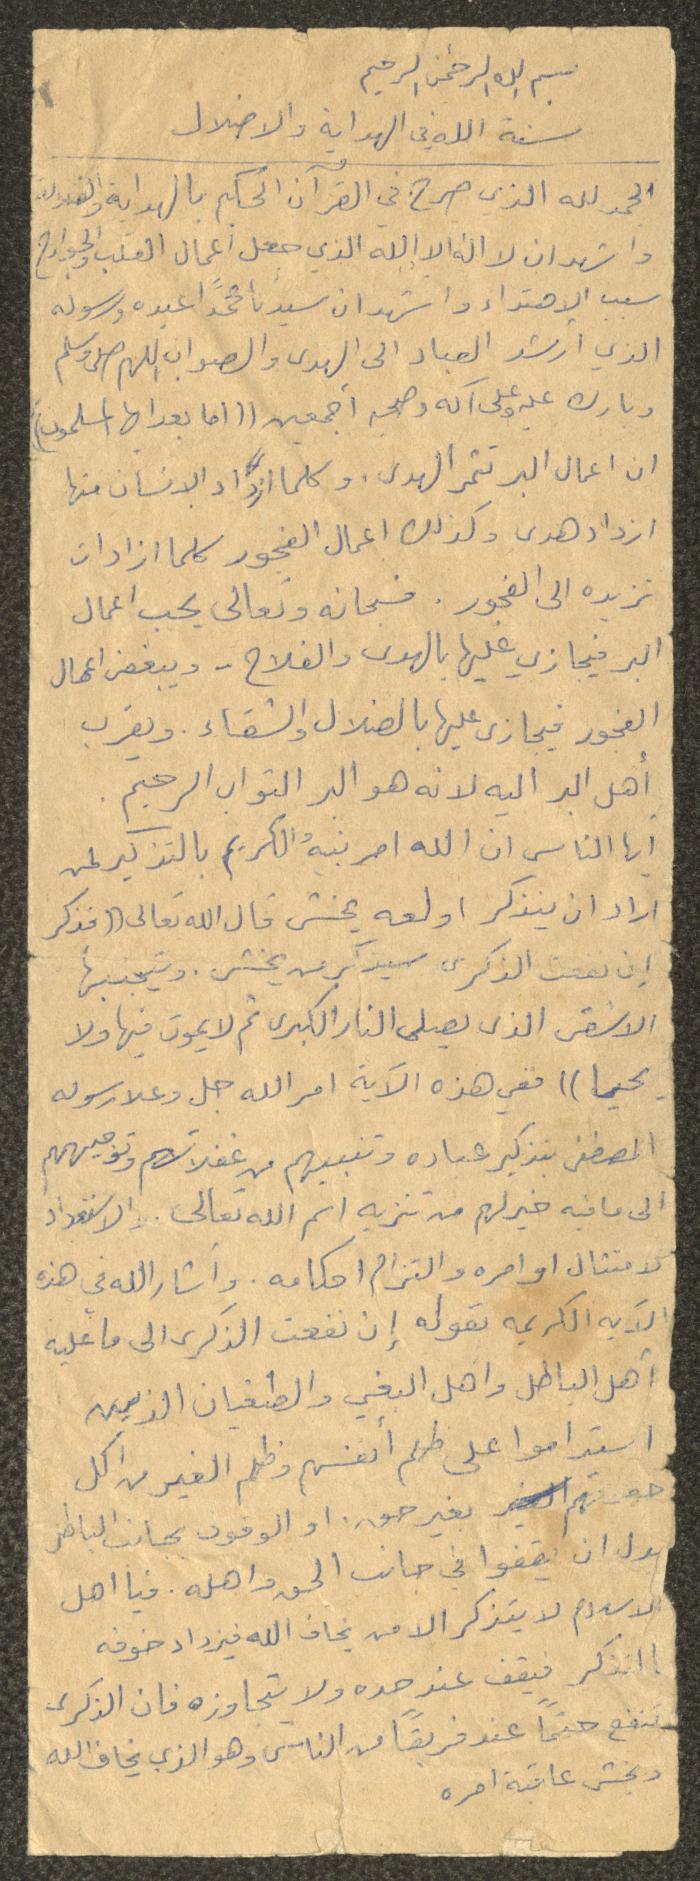 بسم الله الرحمن الرحيم
سنة الله في الهداية والاضلال
الحمد لله الذي صرح في القرآن الحكيم بالهداية والضلالة
واشهد ان لا اله الا الله الذي جعل اعمال القلب والجوارح
سبب الاهتداء واشهد ان سيدنا محمدًا عبده ورسوله
الذي أرشد العباد الى الهدى والصواب اللهم صلي وسلم
وبارك عليه وعلى آله وصحبه أجمعين ((اما بعد ايها المسلمون))
ان اعمال البر تثمر الهدى، وكلما ازداد الانسان منها
ازداد هدى وكذلك اعمال الفجور كلما ازادات
تزيده الى الفجور. فسبحانه وتعالى يحب اعمال
البر فيجازي عليها بالهدى والفلاح - ويبغض اعمال
الفجور فيجازى عليها بالضلال والشقاء. ويقرب
أهل البر اليه لانه هو البر التواب الرحيم.
أيها الناس ان الله امر نبيه الكريم بالتذكير لمن
اراد ان يتذكر او لعه يخشى قال الله تعالى ((فذكر
إن نفعت الذكرى سيذكر من يخشى. ويتجنبها
الاشقى الذى يصلى النار الكبرى ثم لا يموت فيها ولا
يحيا)) ففي هذه الآية امر الله جل وعلا رسوله
المصطفى بتذكير عباده وتنبيههم من غفلاتهم وتوجيههم
الى ما فيه خير لهم من تنزيه اسم الله تعالى. والاستعداد
لامتثال اوامره والتزام احكامه. وأشار الله في هذه
الآيه الكريمه بقوله إن نفعت الذكرى الى ما عليه
أهل الباطل واهل البغي والطغيان الذين
استداموا على ظلم أنفسهم وظلم الغير من اكل
حقوقهم بغير حق. او الوقوف بجانب الباطل
بدل ان يقفوا في جانب الحق واهله. فيا اهل
الاسلام لا يتذكر الا من يخاف الله فيزداد خوفه
باالذكر فيقف عند حده ولا يتجاوزه فان الذكرى
تنفع حتمًا عند فريقًا من الناس وهو الذي يخاف الله
ويخشى عاقبة امره